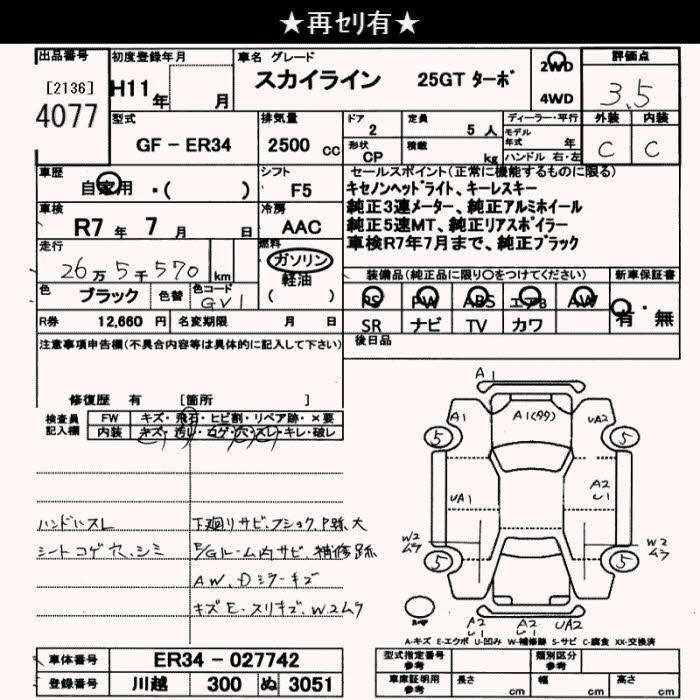 ★再ｾﾘ有★
出品番号
[2136]
4077
初度登録年月
H11 年 月
車名 グレード
スカイライン 25GT ﾀｰﾎﾞ
2WD
4WD
評価点
3.5
型式
GF - ER34
排気量
2500 cc
ドア
2
定員
5 人
形状
CP
積載
kg
ディーラー・平行
モデル年式 年
ハンドル 右・左
外装
C
内装
C
車歴
自家用 ・( )
シフト
F5
車検
R7 年 7 月 日
冷房
AAC
走行
26 万 5 千 570 km
燃料
ガソリン
軽油
( )
色
ブラック
色替
色コード
GV1
R券 12,660 円
名変期限 月 日
セールスポイント(正常に機能するものに限る)
キセノンヘッドライト、キーレスキー
純正3連メーター、純正アルミホイール
純正5速MT、純正リアスポイラー
車検R7年7月まで、純正ブラック
装備品(純正品に限り〇をつけてください)
PS PW ABS エアB AW
SR ナビ TV カワ
新車保証書
有・無
後日品
注意事項申告欄(不具合内容等は具体的に記入して下さい)
修復歴 有 [箇所 ]
検査員記入欄
FW キズ・飛石・ヒビ割・リペア跡・×要
内装 キズ・汚れ・コゲ・穴・スレ・キレ・破レ
ハンドルスレ
シートコゲ穴、シミ
下廻りサビ、フショク、P跡大
E/Gルーム内サビ、補修跡
AW、Dミラーキズ
キズE・スリキズ、W2ムラ
A1
A1
A1(99)
UA2
5
5
UA1
A2
U1
W2
ムラ
W2
ムラ
5
5
A2
U1
A2
U1
UA2
A-キズ E-エクボ U-凹み W-補修跡 S-サビ C-腐食 XX-交換済
車体番号
ER34 - 027742
登録番号
川越 300 ぬ 3051
型式指定番号
参考
類別区分
参考
車庫証明用
参考
長さ cm
幅 cm
高さ cm